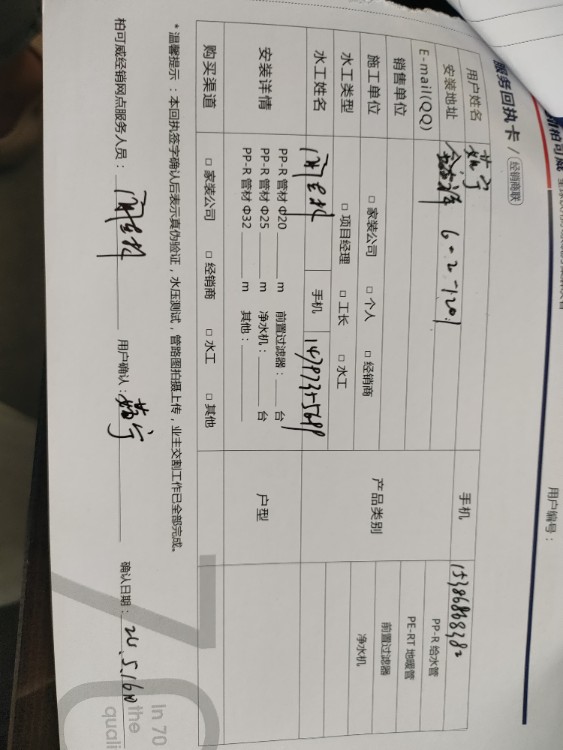 服务回执卡 / 经销商联
用户编号：
用户姓名
手机 15386868382
安装地址 6-2-1201
E-mail(QQ)
销售单位
施工单位 □ 家装公司 □ 个人 □ 经销商
水工类型 □ 项目经理 □ 工长 □ 水工
水工姓名 手机
产品类别
PP-R 给水管
PE-RT 地暖管
前置过滤器
净水机
安装详情
PP-R 管材 Φ20 m 前置过滤器： 台
PP-R 管材 Φ25 m 净水机： 台
PP-R 管材 Φ32 m 其他：
户型
购买渠道 □ 家装公司 □ 经销商 □ 水工 □ 其他
* 温馨提示 ：本回执签字确认后表示真伪验证，水压测试，管路图拍摄上传，业主交割工作已全部完成。
柏可威经销网点服务人员： 用户确认： 确认日期： 24.5.16日
In 70
the
quali